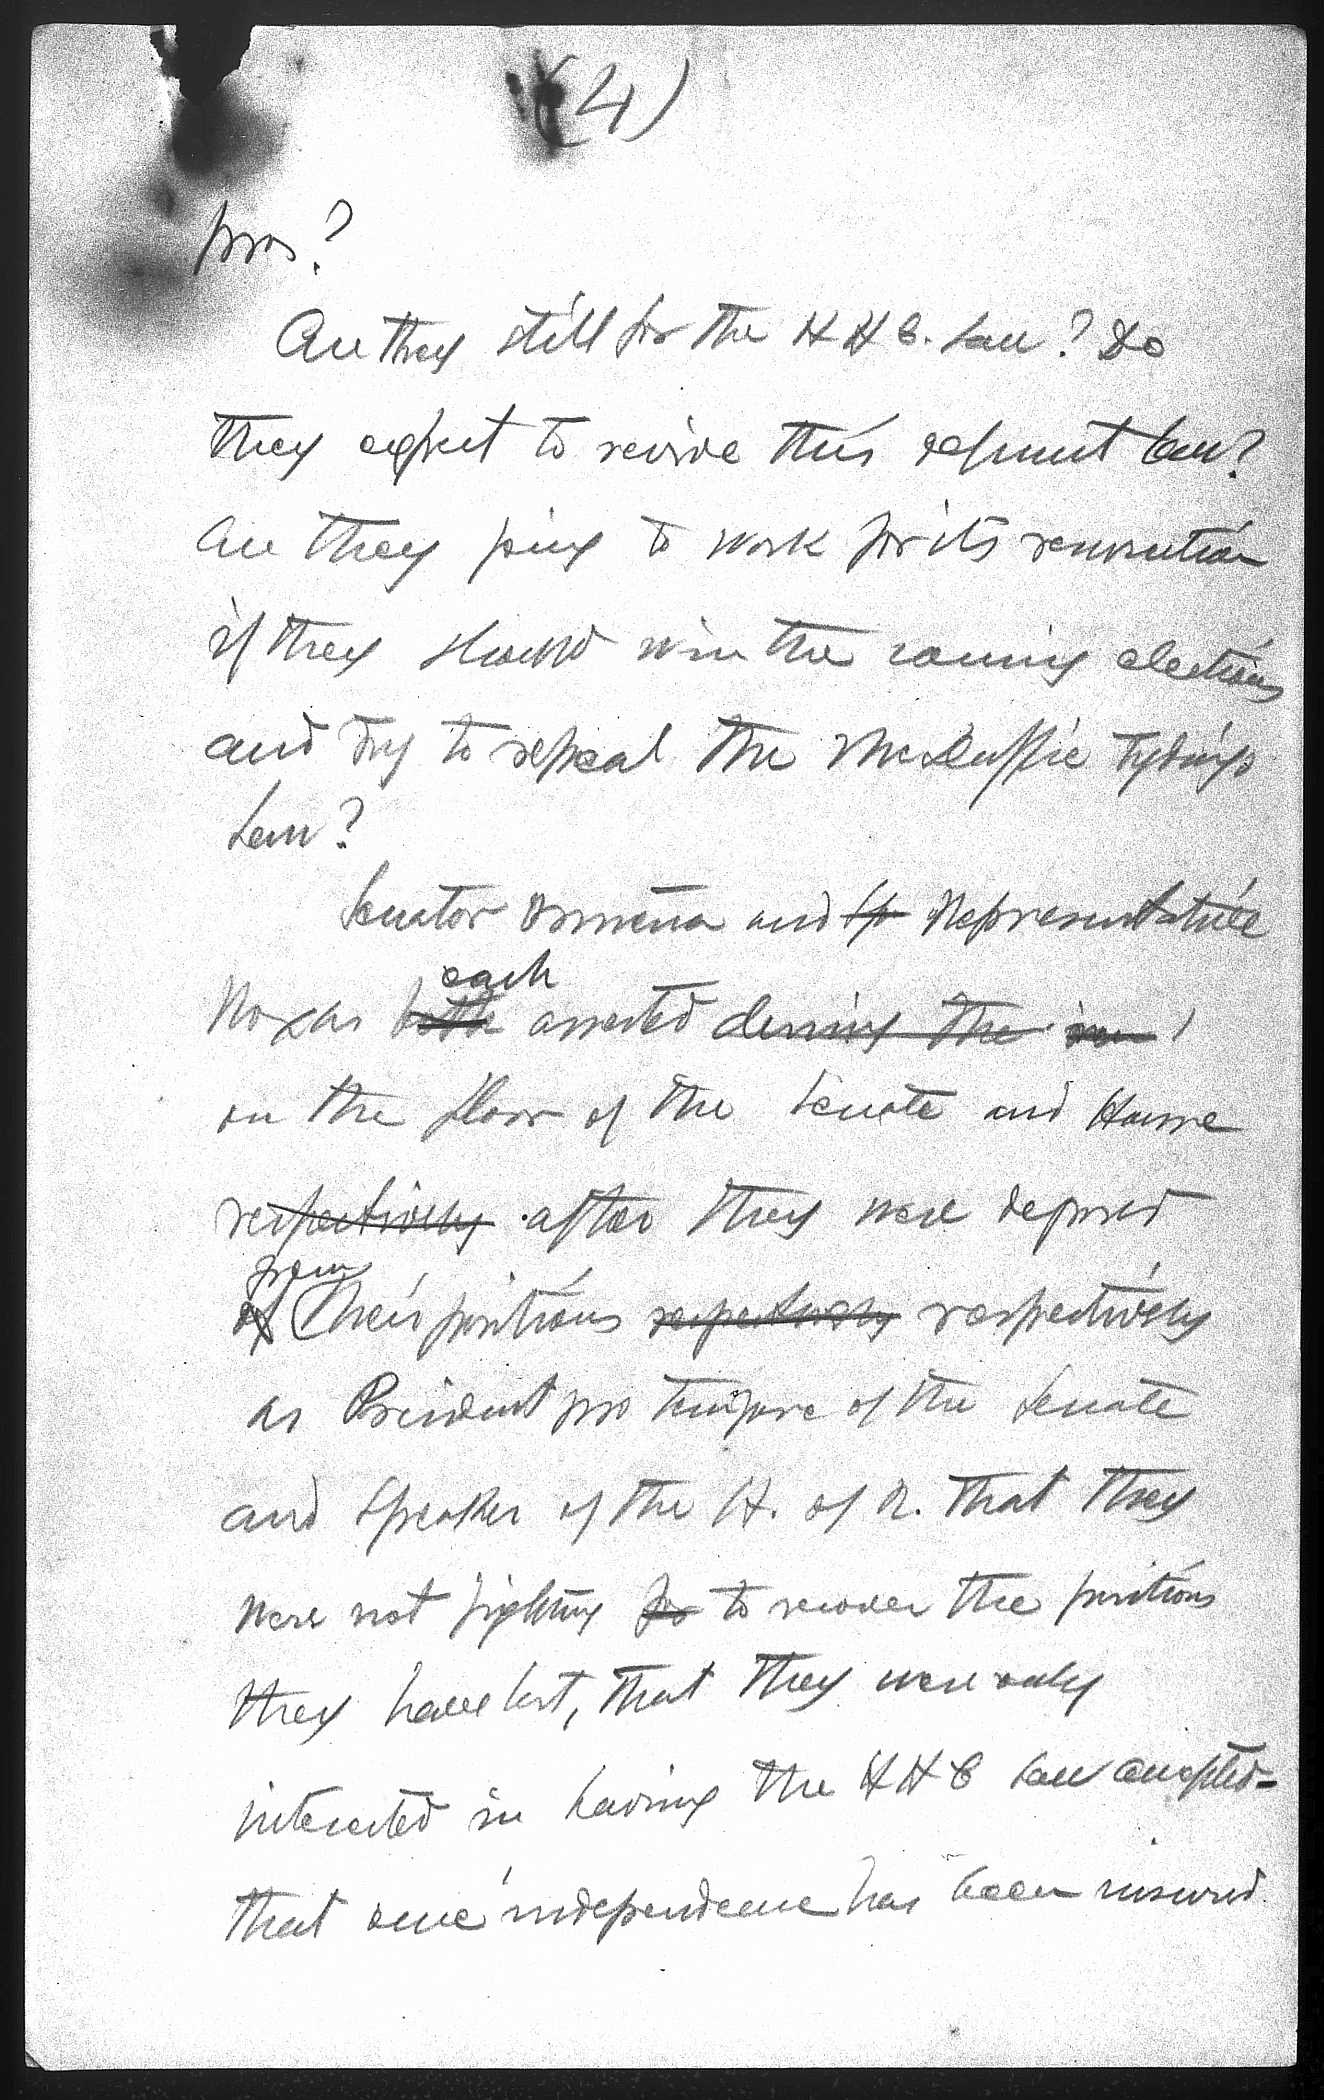 (4)
pros?
Are they still for the H H C. Law? Do
they expect to revive this defunct law?
Are they going to work for its renovation
if they should win the coming elections
and try to repeal the McDuffie Tydings
Law?
Senator Osmeña and Sp Representative
each
Roxas both asserted during the
on the floor of the Senate and House
respectively after they were deposed
from
of their positions respectively respectively
as President pro tempore of the Senate
and Speaker of the H. of R. that they
were not fighting for to recover the positions
they have lost, that they were only
interested in having the H H C Law accepted-
that once independence has been insured